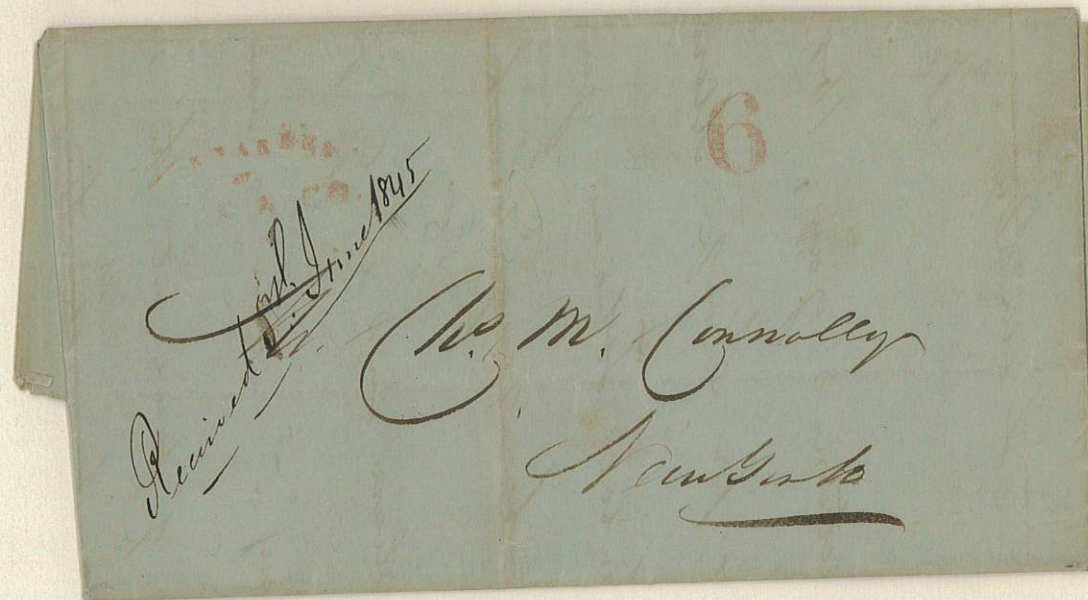 6
& CO.
Received June 1845
Chs M. Connolly
New York